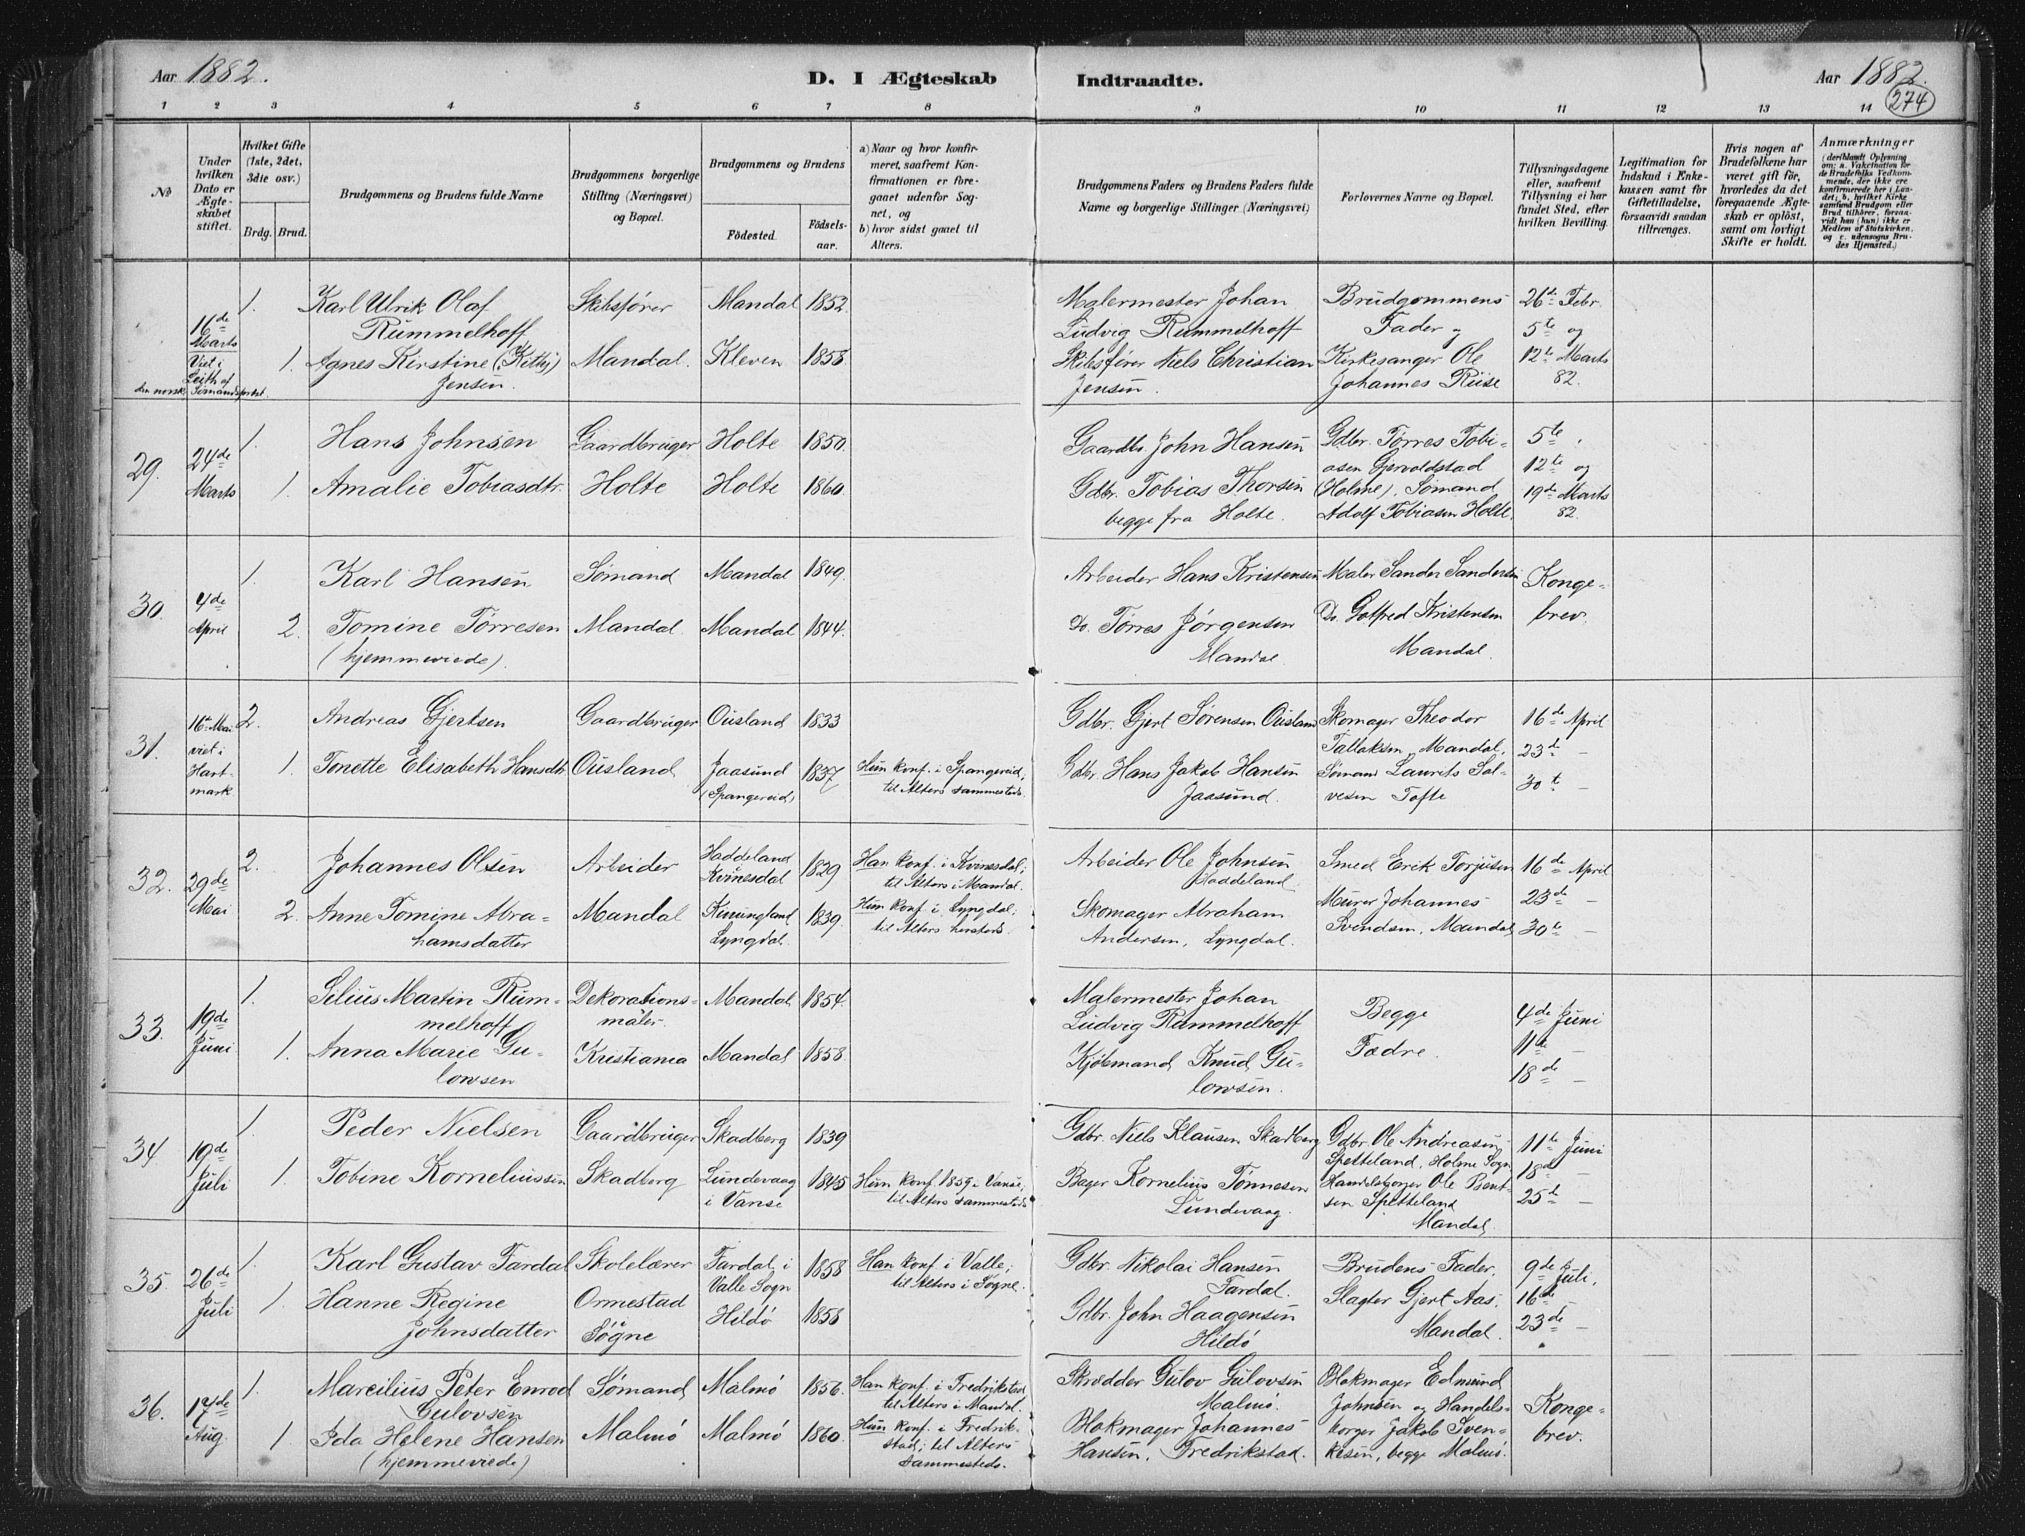 Aar 1882.
D. I Ægteskab Indtraadte.
Aar 1882.
274
1 2 3 4 5 6 7 8 9 10 11 12 13 14
No
Under hvilken Dato er Ægteskabet stiftet.
Hvilket Gifte (1ste, 2det, 3die osv.)
Brdg. Brud.
Brudgommens og Brudens fulde Navne
Brudgommens borgerlige Stilling (Næringsvei) og Bopæl.
Brudgommens og Brudens
Födested. Födselsaar.
a) Naar og hvor konfirmeret, saafremt Konfirmationen er foregaaet udenfor Sognet, og
b) hvor sidst gaaet til Alters.
Brudgommens Faders og Brudens Faders fulde Navne og borgerlige Stillinger (Næringsvei)
Forlovernes Navne og Bopæl.
Tillysningsdagene eller, saafremt Tillysning ei har fundet Sted, efter hvilken Bevilling.
Legitimation for Indskud i Enkekassen samt for Giftetilladelse, forsaavidt saadan tiltrænges.
Hvis nogen af Brudefolkene har været gift för, hvorledes da det foregaaende Ægteskab er oplöst, samt om lovligt Skifte er holdt.
Anmærkninger
(deriblandt Oplysning om: a. Vakcination for de Brudefolks Vedkommende, der ikke ere konfirmerede her i Landet; b. hvilket Kirkesamfund Brudgom eller Brud tilhörer, forsaavidt han (hun) ikke er Medlem af Statskirken, og c. udensogns Brudes Hjemsted.)
16de Marts
Viet i Leith af den norske Sømandsprest.
1. Karl Ulrik Olaf Rummelhoff
Skibsfører Mandal 1852
Malermester Johan Ludvig Rummelhoff
Brudgommens Fader og
26de Febr.
5te og
1. Agnes Kirstine (Kitty) Jensen.
Mandal. Kleven 1858.
Skibsfører Niels Christian Jensen.
Kirkesanger Ole Johannes Riise
12te Marts 82.
29. 24de Marts
1. Hans Johnsen Gaardbruger Holte 1850.
Gaardbr. John Hansen
Gdbr. Tørres Tobiasen Gjervoldstad (Holme). Sømand Adolf Tobiasen Holte.
5te,
12te og
19de Marts 82.
1. Amalie Tobiasdtr. Holte Holte 1860.
Gdbr. Tobias Thorsen begge fra Holte.
30. 4de April
1. Karl Hansen Sømand Mandal 1849.
Arbeider Hans Kristensen
Maler Sander Sandersen
Kongebrev.
2. Tomine Tørresen Mandal Mandal 1844.
(hjemmeviede).
Do. Tørres Jørgensen Mandal
Do. Gotfred Kristensen Mandal.
31. 16de Mai viet i Hartmark.
2. Andreas Gjertsen Gaardbruger Ousland 1833
Gdbr. Gjert Sørensen Ousland
Skomager Theodor Tallaksen, Mandal,
16de April
23de —
30te —
1. Tonette Elisabeth Hansdtr Ousland Jaasund (Spangereid) 1837
Hun konf. i Spangereid; til Alters sammesteds.
Gdbr. Hans Jakob Hansen Jaasund.
Sømand Laurits Salvesen Tofte
32. 29de Mai
2. Johannes Olsen Arbeider Haddeland Kvinesdal 1829
Han konf. i Kvinesdal; til Alters i Mandal.
Arbeider Ole Johnsen Haddeland.
Smed Erik Torjusen
16de April
23de —
30te —
2. Anne Tomine Abrahamsdatter Mandal Lyngdal. 1839.
Hun konf. i Lyngdal; til Alters hersteds.
Skomager Abraham Andersen, Lyngdal.
Murer Johannes Svendsen, Mandal
33. 19de Juni
1. Silius Martin Rummelhoff Dekorationsmaler Mandal 1854.
Malermester Johan Ludvig Rummelhoff
Begge Fædre.
4de Juni
11te —
18de —
1. Anna Marie Gulowsen Kristiania Mandal 1858.
Kjøbmand Knud Gulowsen.
34 19de Juli
1. Peder Nielsen Gaardbruger Skadberg 1839
Gdbr. Niels Klausen Skadberg
Gdbr. Ole Andreasen Spetteland, Holme Sogn
11te Juni
18de —
25de —
1. Tobine Korneliussen Skadberg Lundevaag i Vanse 1845
Hun konf. 1859 i Vanse; til Alters sammesteds
Bager Kornelius Tønnesen Lundevaag.
Handelsborger Ole Bentsen Spetteland Mandal.
35. 26de Juli
1. Karl Gustav Fardal Skolelærer Fardal i Valle Sogn 1858
Han konf. i Valle; til Alters i Søgne.
Gdbr. Nikolai Hansen Fardal.
Brudens Fader.
9de Juli,
16de —
23de —
1. Hanne Regine Johnsdatter Ormestad Søgne Hildø 1858
Gdbr. John Haagensen Hildø
Slagter Gjert Aas, Mandal.
36. 17de Aug.
1. Marcilius Peter Enrod Gulovsen Sømand Malmø 1856.
Han konf. i Fredrikstad til Alters i Mandal.
Skrædder Gulov Gulovsen Malmø.
Blokmager Edmund Johnsen og Handelsborger Jakob Svenkesen, begge Malmø.
Kongebrev.
1 Ida Helene Hansen Malmø Malmø 1860.
(hjemmeviede)
Hun konf. i Fredrikstad; til Alters sammesteds.
Blokmager Johannes Hansen, Fredrikstad.